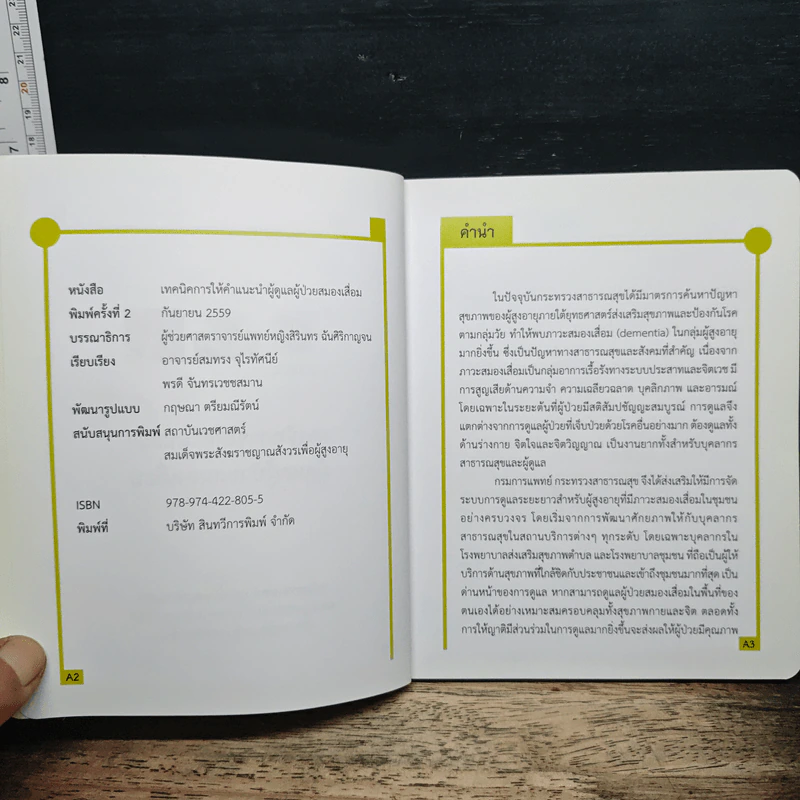 หนังสือ เทคนิคการให้คำแนะนำผู้ดูแลผู้ป่วยสมองเสื่อม
พิมพ์ครั้งที่ 2 กันยายน 2559
บรรณาธิการ ผู้ช่วยศาสตราจารย์แพทย์หญิงสิรินทร ฉันศิริกาญจน
เรียบเรียง อาจารย์สมทรง จุไรทัศนีย์
พรดี จันทรเวชชสมาน
พัฒนารูปแบบ กฤษณา ตรียมณีรัตน์
สนับสนุนการพิมพ์ สถาบันเวชศาสตร์
สมเด็จพระสังฆราชญาณสังวรเพื่อผู้สูงอายุ
ISBN 978-974-422-805-5
พิมพ์ที่ บริษัท สินทวีการพิมพ์ จำกัด
A2
คำนำ
ในปัจจุบันกระทรวงสาธารณสุขได้มีมาตรการค้นหาปัญหา
สุขภาพของผู้สูงอายุภายใต้ยุทธศาสตร์ส่งเสริมสุขภาพและป้องกันโรค
ตามกลุ่มวัย ทำให้พบภาวะสมองเสื่อม (dementia) ในกลุ่มผู้สูงอายุ
มากยิ่งขึ้น ซึ่งเป็นปัญหาทางสาธารณสุขและสังคมที่สำคัญ เนื่องจาก
ภาวะสมองเสื่อมเป็นกลุ่มอาการเรื้อรังทางระบบประสาทและจิตเวช มี
การสูญเสียด้านความจำ ความเฉลียวฉลาด บุคลิกภาพ และอารมณ์
โดยเฉพาะในระยะต้นที่ผู้ป่วยมีสติสัมปชัญญะสมบูรณ์ การดูแลจึง
แตกต่างจากการดูแลผู้ป่วยที่เจ็บป่วยด้วยโรคอื่นอย่างมาก ต้องดูแลทั้ง
ด้านร่างกาย จิตใจและจิตวิญญาณ เป็นงานยากทั้งสำหรับบุคลากร
สาธารณสุขและผู้ดูแล
กรมการแพทย์ กระทรวงสาธารณสุข จึงได้ส่งเสริมให้มีการจัด
ระบบการดูแลระยะยาวสำหรับผู้สูงอายุที่มีภาวะสมองเสื่อมในชุมชน
อย่างครบวงจร โดยเริ่มจากการพัฒนาศักยภาพให้กับบุคลากร
สาธารณสุขในสถานบริการต่างๆ ทุกระดับ โดยเฉพาะบุคลากรใน
โรงพยาบาลส่งเสริมสุขภาพตำบล และโรงพยาบาลชุมชน ที่ถือเป็นผู้ให้
บริการด้านสุขภาพที่ใกล้ชิดกับประชาชนและเข้าถึงชุมชนมากที่สุด เป็น
ด่านหน้าของการดูแล หากสามารถดูแลผู้ป่วยสมองเสื่อมในพื้นที่ของ
ตนเองได้อย่างเหมาะสมครอบคลุมทั้งสุขภาพกายและจิต ตลอดทั้ง
การให้ญาติมีส่วนร่วมในการดูแลมากยิ่งขึ้นจะส่งผลให้ผู้ป่วยมีคุณภาพ
A3
22
21
20
19
18
8
7